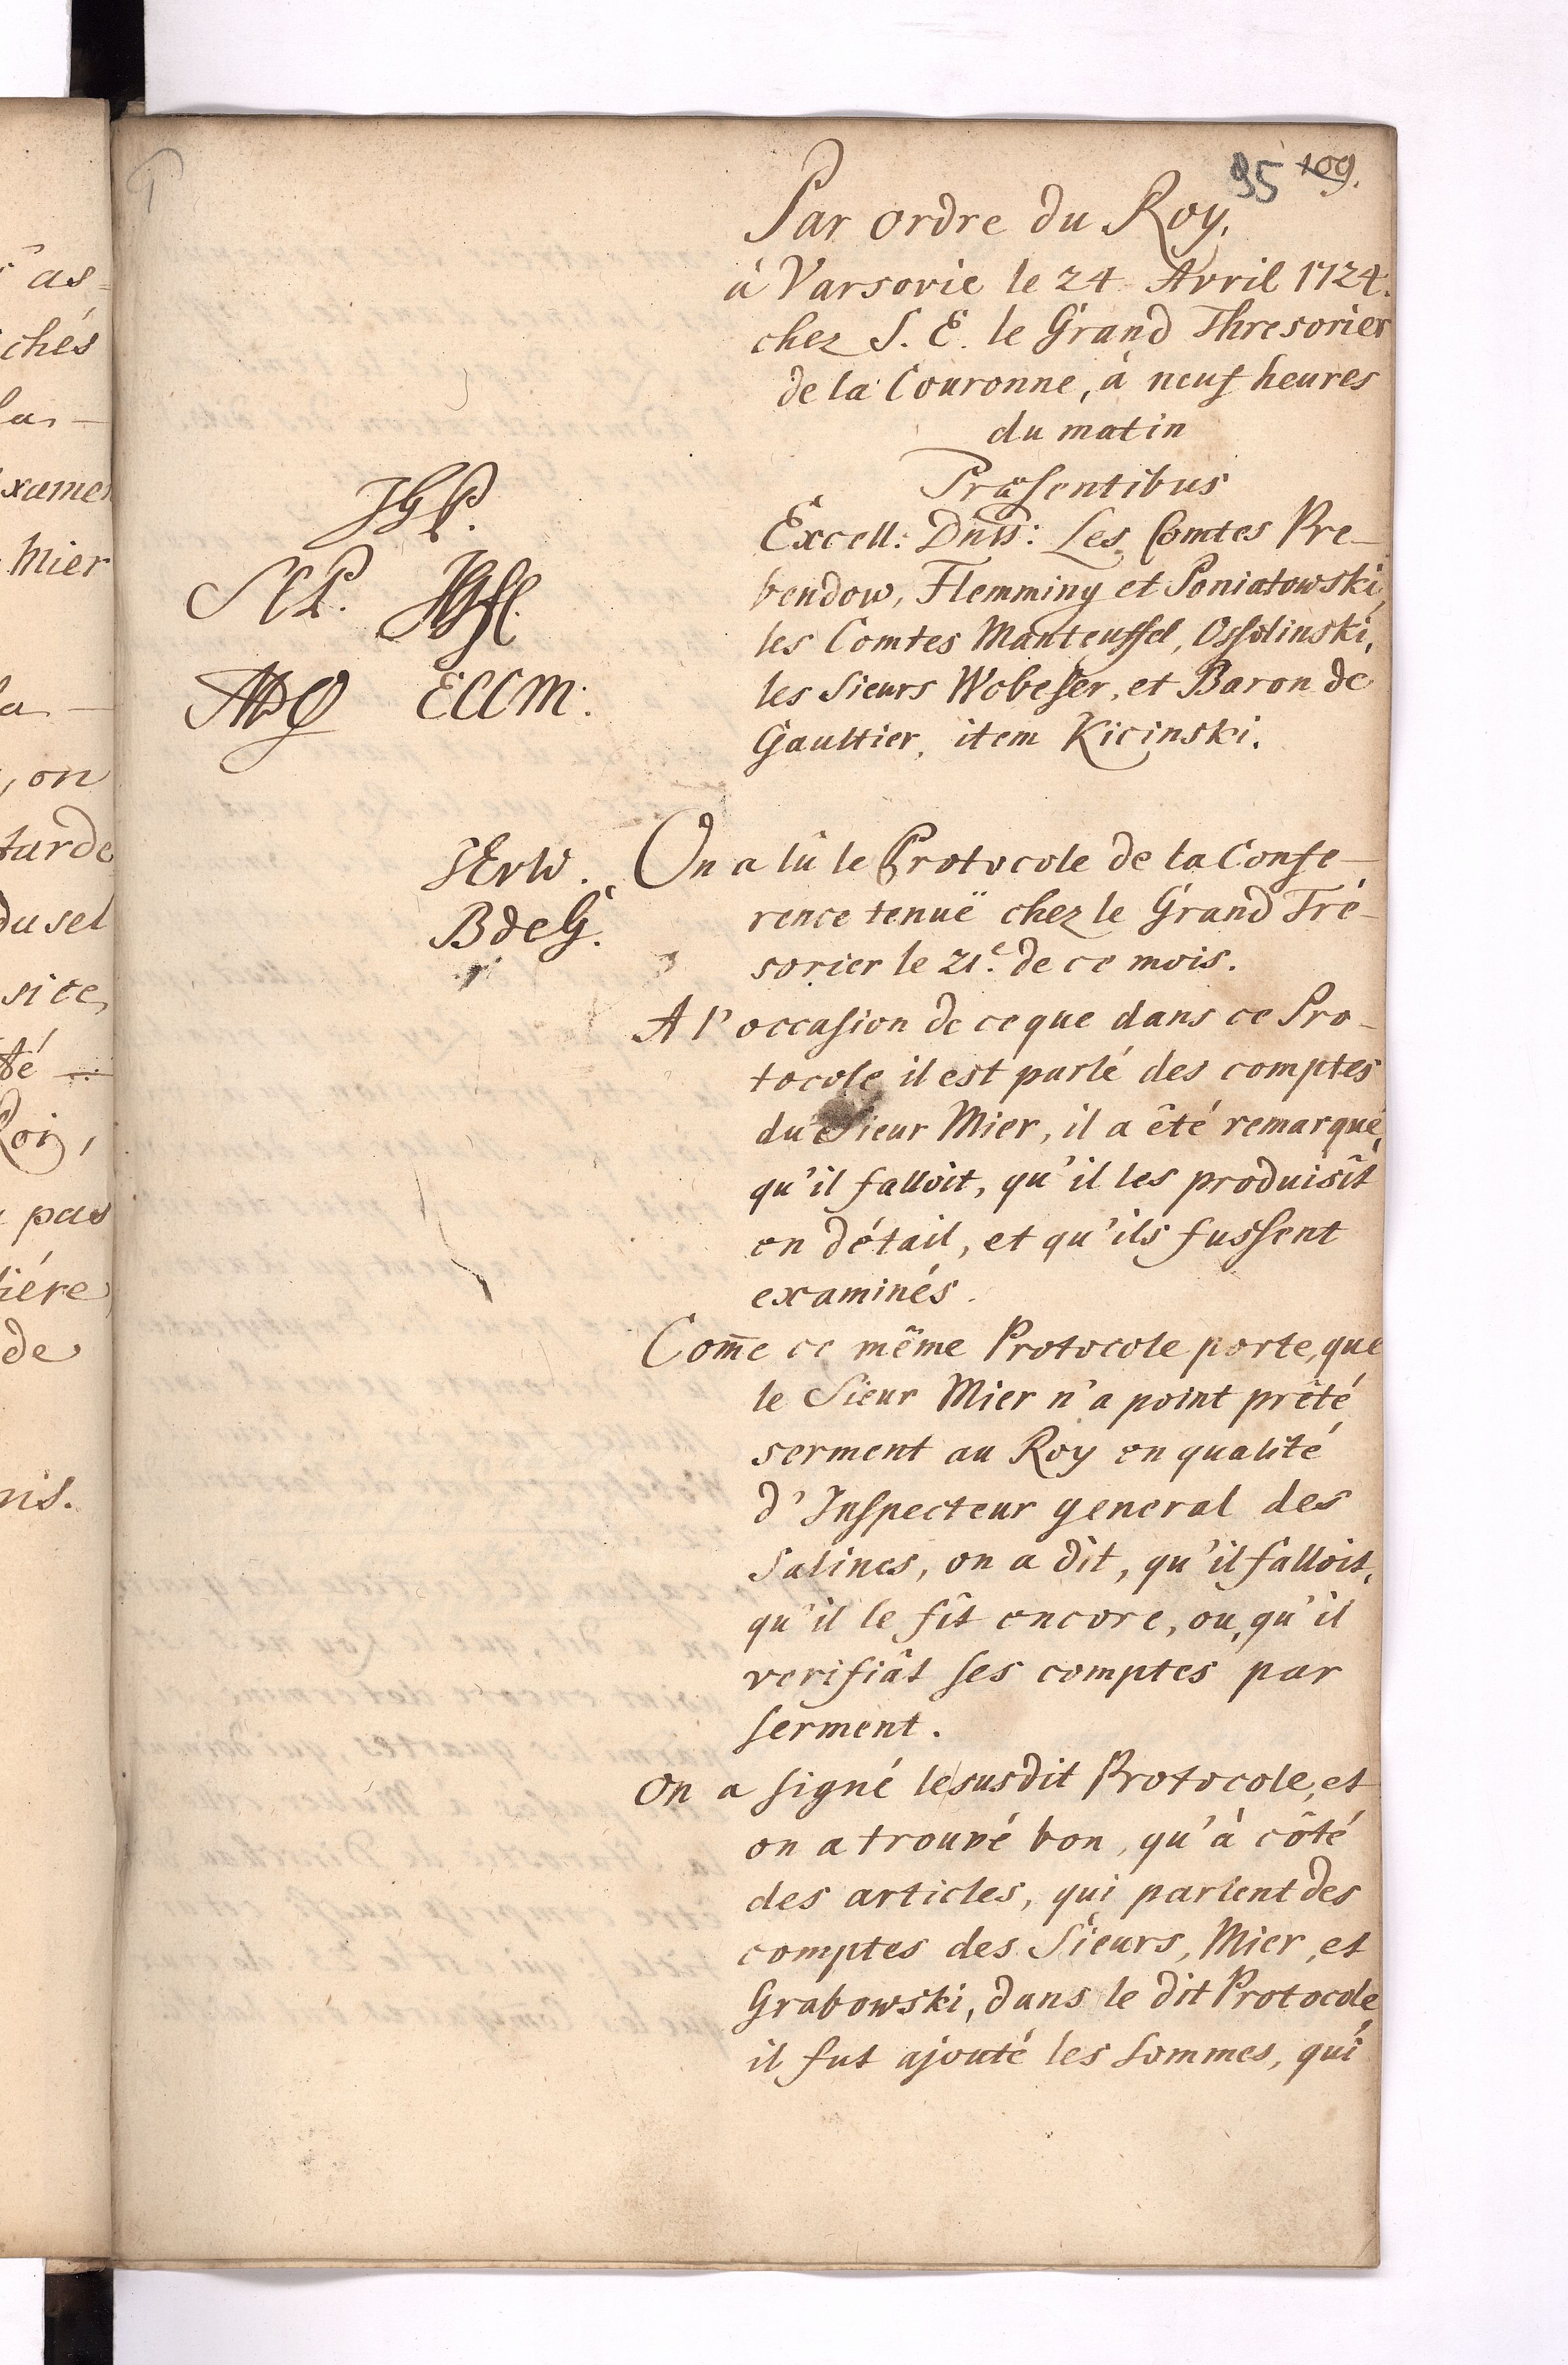 95 109.
Par ordre du Roy.
à Varsovie le 24 Avril 1724.
chez S. E. le Grand Thresorier
de la Couronne, à neuf heures
du matin
Præsentibus
Excell: Dnis: Les Comtes Pre-
bendow, Flemming et Poniatowski,
les Comtes Manteuffel, Ossolinski,
les Sieurs Wobeser, et Baron de
Gaultier, item Kicinski.
JGP.
SCP.
ECCM:
JErW.
BdeG.
On a lû le Protocole de la Confe-
rence tenuë chez le Grand Tré-
sorier le 21.e de ce mois.
A l'occasion de ce que dans ce Pro-
tocole il est parlé des comptes
du Sieur Mier, il a êté remarqué,
qu'il falloit, qu'il les produisît
en détail, et qu'ils fussent
examinés.
Com̄e ce même Protocole porte, que
le Sieur Mier n'a point prêté
serment au Roy en qualité
d'Inspecteur general des
Salines, on a dit, qu'il falloit,
qu'il le fît encore, ou, qu'il
verifiât ses comptes par
serment.
On a signé le susdit Protocole, et
on a trouvé bon, qu'à côté
des articles, qui parlent des
comptes des Sieurs, Mier, et
Grabowski, dans le dit Protocole,
il fut ajouté les sommes, qui
as-
chés
la-
xamen
Mier
la -
, on
tarde
du sel
site,
té
Roi,
pas
iére
de
nis.